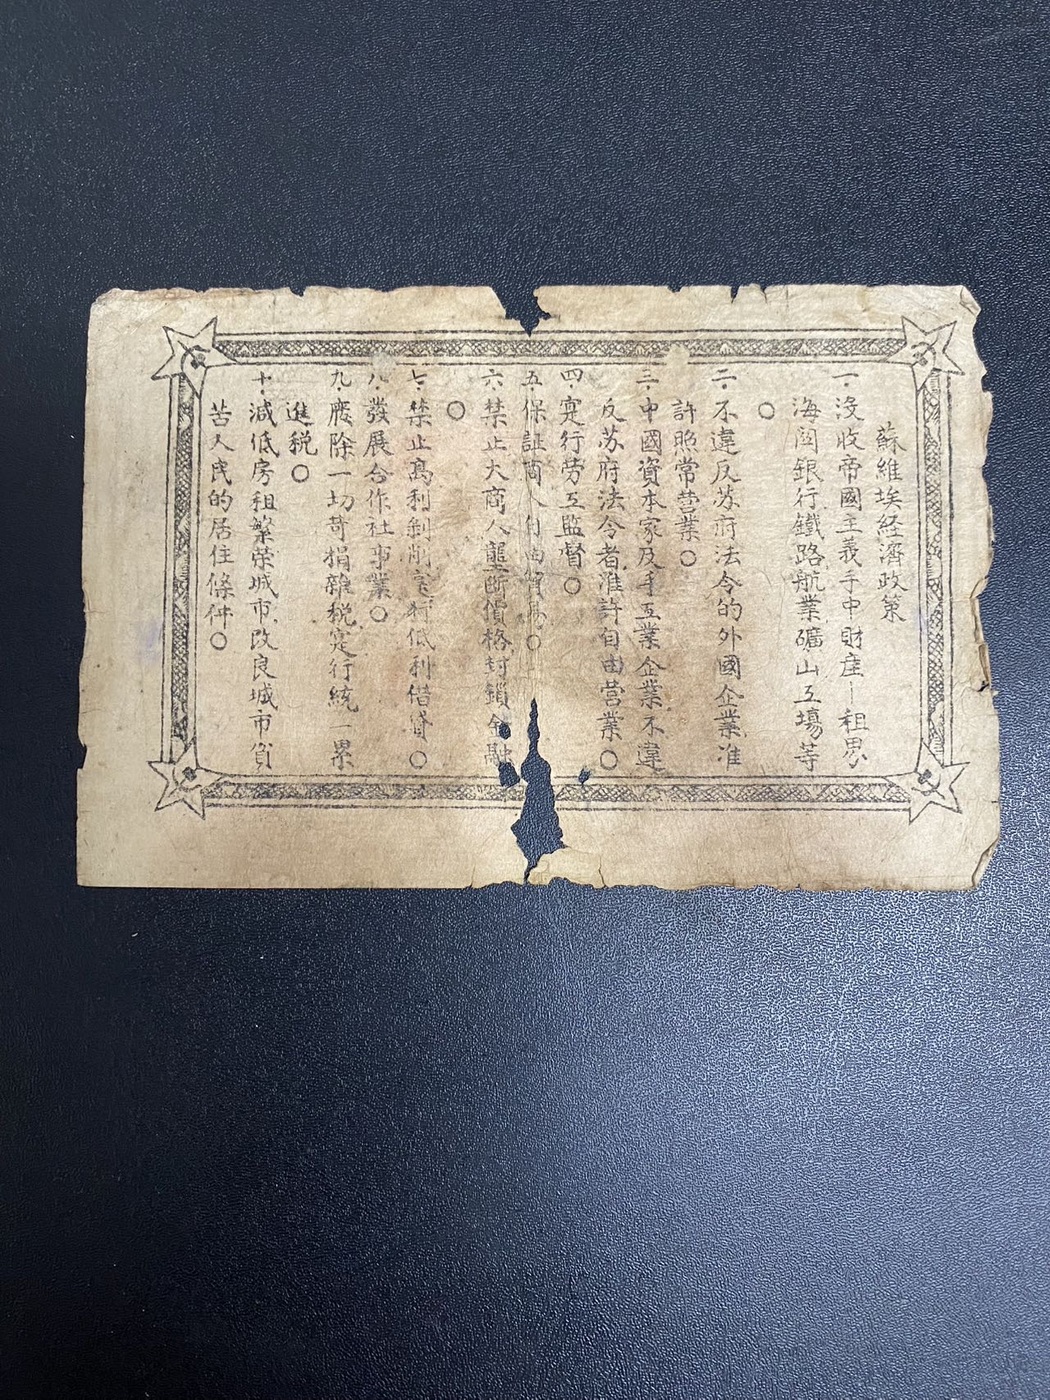 蘇維埃経濟政策
一.沒收帝國主義手中財產—租界
海関銀行鐵路航業礦山工場等
〇
二.不違反苏府法令的外國企業准
許照常营業〇
三.中國資本家及手工業企業不違
反苏府法令者准許自由营業〇
四.寔行劳工監督〇
五.保証商人自由貿易〇
六.禁止大商人壟断價格封鎖金融
〇
七.禁止高利剝削寔行低利借貸〇
八.發展合作社事業〇
九.廢除一切苛捐雜税寔行統一累
進税〇
十.減低房租繁荣城市改良城市貧
苦人民的居住條件〇